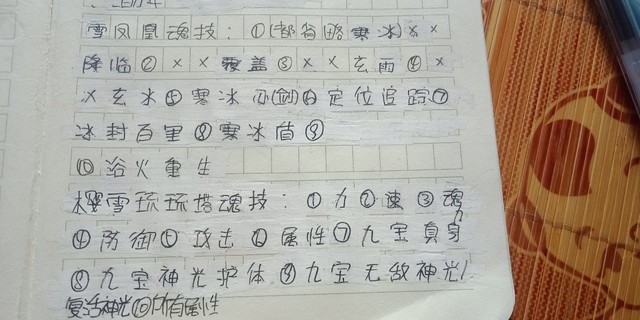 雪凤凰魂技：①(都省略寒冰)××
降临②××覆盖③××玄雨④×
×玄冰⑤寒冰刃(剑)⑥定位追踪⑦
冰封百里⑧寒冰盾⑨
⑩浴火重生
樱雪琉琉塔魂技：①力②速③魂力
④防御⑤攻击⑥属性⑦九宝真身
⑧九宝神光护体⑨九宝无敌神光/
复活神光⑩所有属性